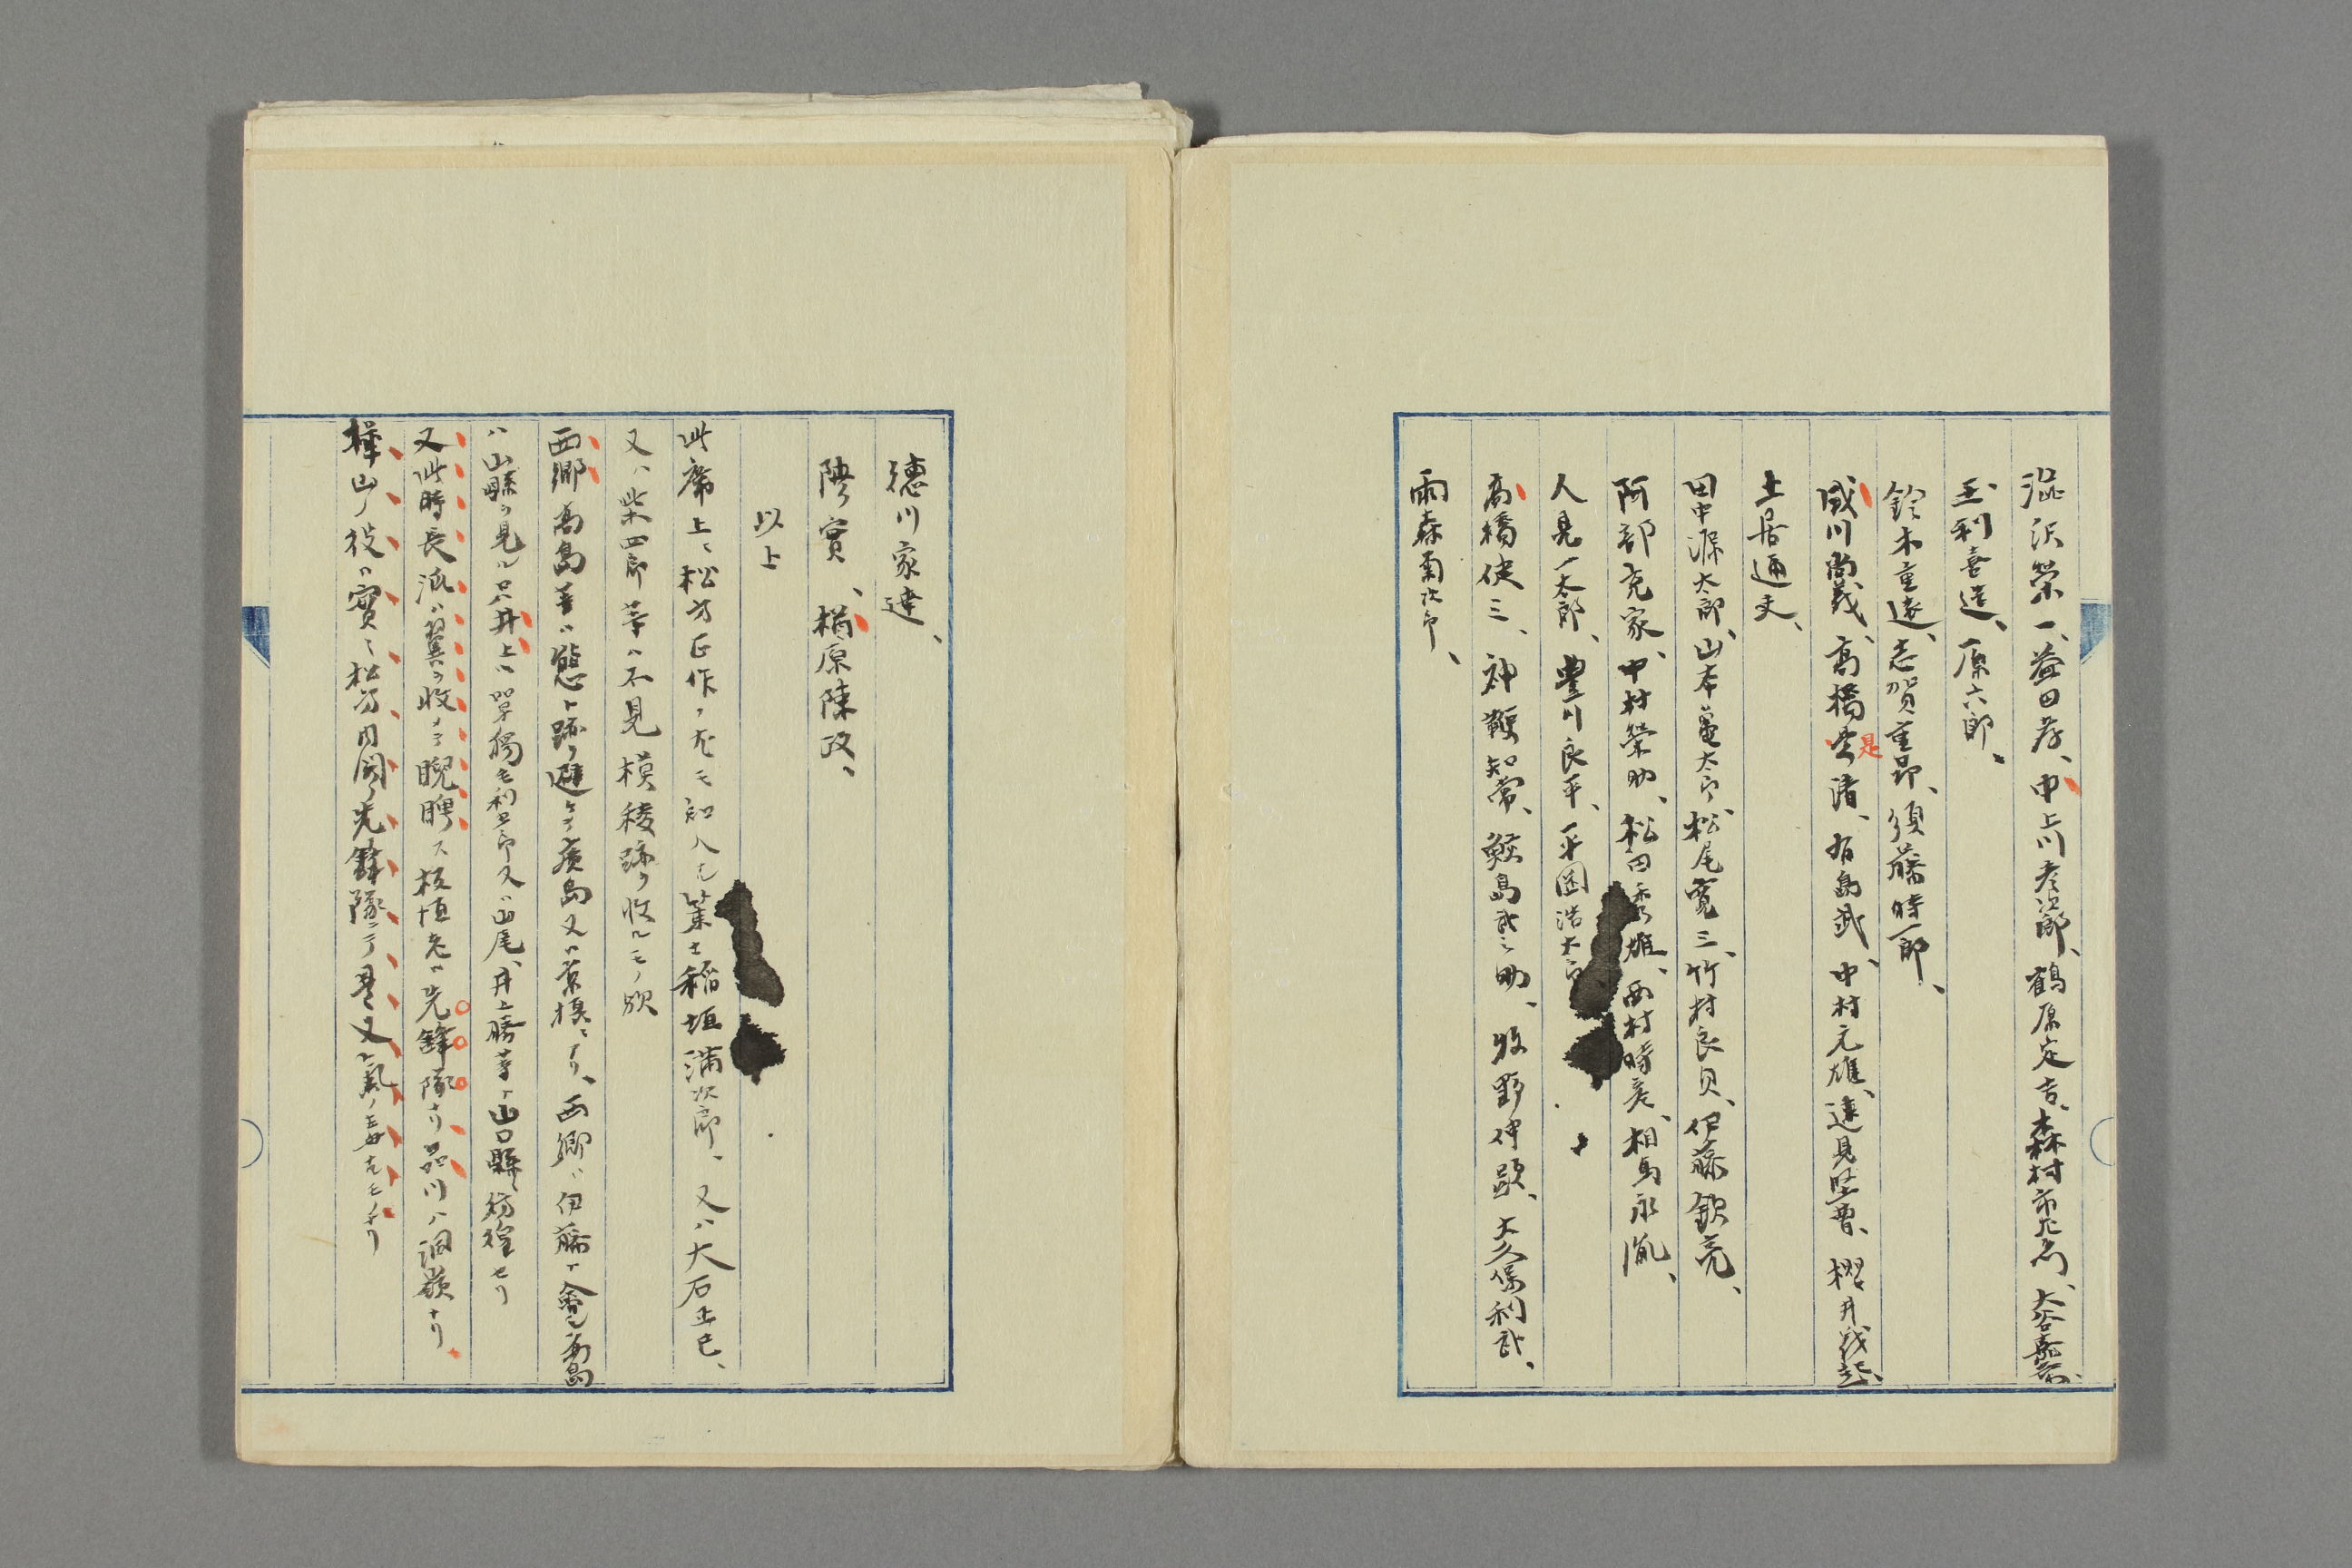 澁沢栄一、益田孝、中上川彦次郎、鶴原定吉、森村市左ヱ門、大谷嘉兵衛、
玉利喜造、原六郎、
鈴木重遠、志賀重昂、須藤時一郎、
成川尚義、高橋是清、有島武、中村元雄、遠見堅曹、櫻井
土居通夫、
田中源太郎、山本亀太郎、松尾寛三、竹村良貞、伊藤欽亮、
阿部充家、中村栄助、松田秀雄、西村時彦、相馬永胤、
人見一太郎、豊川良平、平岡浩太郎、
高橋健三、神鞭知常、鮫島武之助、牧野伸顕、大久保利武、
雨森菊次郎、
徳川家達、
陸實、楢原陳政、
以上
此席上ニ松方正作ノ尤モ知人た策士稲垣満次郎、又ハ大石正巳、
又ハ柴四郎等ハ不見模稜跡ヲ收ルモノ歟
西郷高島等ハ態ト跡ヲ避ケテ廣島又ハ京橋ニアリ、西郷ハ伊藤ト會シ高島
ハ山縣ヲ見ル只井上ハ單獨毛利五郎又ハ山尾、井上勝等ト山口縣ニ彷徨セリ
又此時長派ハ翼ヲ收メテ睨睥ス板垣老ハ先鋒隊ナリ品川ハ洞嶺ナリ
樺山ノ役ハ實ニ松方内閣ノ先鋒隊ニテ是又